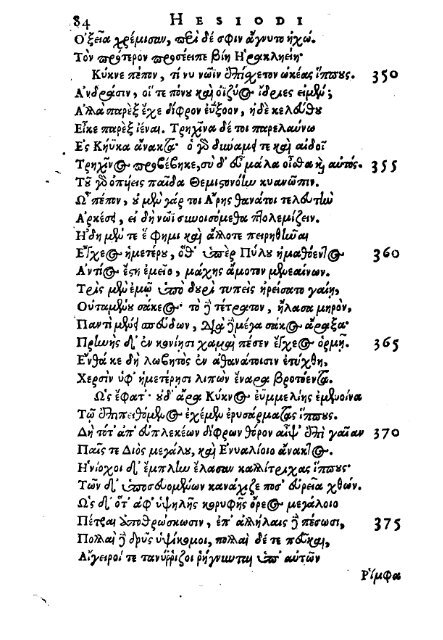 84 HESIODI
Ὀξεῖα χρέμισαν, περὶ δέ σφιν ἄγνυτο ἠχώ.
Τὸν πρότερον προσέειπε βίη Ἡρακληείη·
Κύκνε πέπον, τί νυ νῶϊν ἐπίσχετον ὠκέας ἵππους. 350
Ἀνδράσιν, οἵ τε πόνου καὶ ὀϊζύος ἴδριες εἰμέν;
Ἀλλὰ παρὲξ ἔχε δίφρον ἐΰξοον, ἠδὲ κελεύθου
Εἶκε παρὲξ ἰέναι. Τρηχῖνα δέ τοι παρελαύνω
Ἐς Κήϋκα ἄνακτα· ὁ γὰρ δυνάμει τε καὶ αἰδοῖ
Τρηχῖνος προβέβηκε, σὺ δ' εὖ μάλα οἶσθα καὶ αὐτός. 355
Τοῦ γὰρ ὀπυίεις παῖδα Θεμιστονόην κυανῶπιν.
Ὦ πέπον, οὐ μὲν γάρ τοι Ἄρης θανάτοιο τελευτὴν
Ἀρκέσει, εἰ δὴ νῶϊ συνοισόμεθα πτολεμίζειν.
Ἤδη μέν τέ ἕ φημι καὶ ἄλλοτε πειρηθῆναι
Ἔγχεος ἡμετέρου, ὅθ' ὑπὲρ Πύλου ἠμαθόεντος 360
Ἀντίος ἔστη ἐμεῖο, μάχης ἄμοτον μενεαίνων.
Τρὶς μὲν ἐμῷ ὑπὸ δουρὶ τυπεὶς ἠρείσατο γαίῃ,
Οὐταμένου σάκεος· τὸ δὲ τέτρατον, ἤλασα μηρόν,
Παντὶ μένει σπεύδων, διὰ δὲ μέγα σάκος ἄραξα·
Πρηνὴς δ' ἐν κονίῃσι χαμαὶ πέσεν ἔγχεος ὁρμῇ. 365
Ἔνθα κε δὴ λωβητὸς ἐν ἀθανάτοισιν ἐτύχθη,
Χερσὶν ὑφ' ἡμετέρῃσι λιπὼν ἔναρα βροτόεντα.
Ὣς ἔφατ'· οὐδ' ἄρα Κύκνος ἐϋμμελίης ἐμενοίνα
Τῷ ἐπιπειθόμενος ἐχέμεν ἐρυσάρματας ἵππους.
Δὴ τότ' ἀπ' εὐπλεκέων δίφρων θόρον αἶψ' ἐπὶ γαῖαν 370
Παῖς τε Διὸς μεγάλου, καὶ Ἐνυαλίοιο ἄνακτος.
Ἡνίοχοι δ' ἔμπλην ἔλασαν καλλίτριχας ἵππους·
Τῶν δ' ὑποσευομένων κανάχιζε ποσ' εὐρεῖα χθών.
Ὡς δ' ὅτ' ἀφ' ὑψηλῆς κορυφῆς ὄρεος μεγάλοιο
Πέτραι ἀποθρώσκωσιν, ἐπ' ἀλλήλαις δὲ πέσωσι, 375
Πολλαὶ δὲ δρῦς ὑψίκομοι, πολλαὶ δέ τε πεῦκαι,
Αἴγειροί τε τανύρριζοι ῥήγνυνται ὑπ' αὐτῶν
Ῥίμφα